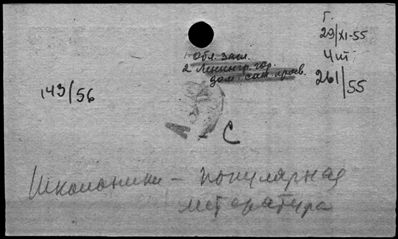 Г.
29/XI-55
4 шт
261/55
1 обл. экз.
2 Ленингр. гор.
дом сан. просв.
143/56
А - С
Школьники - популярная
литература